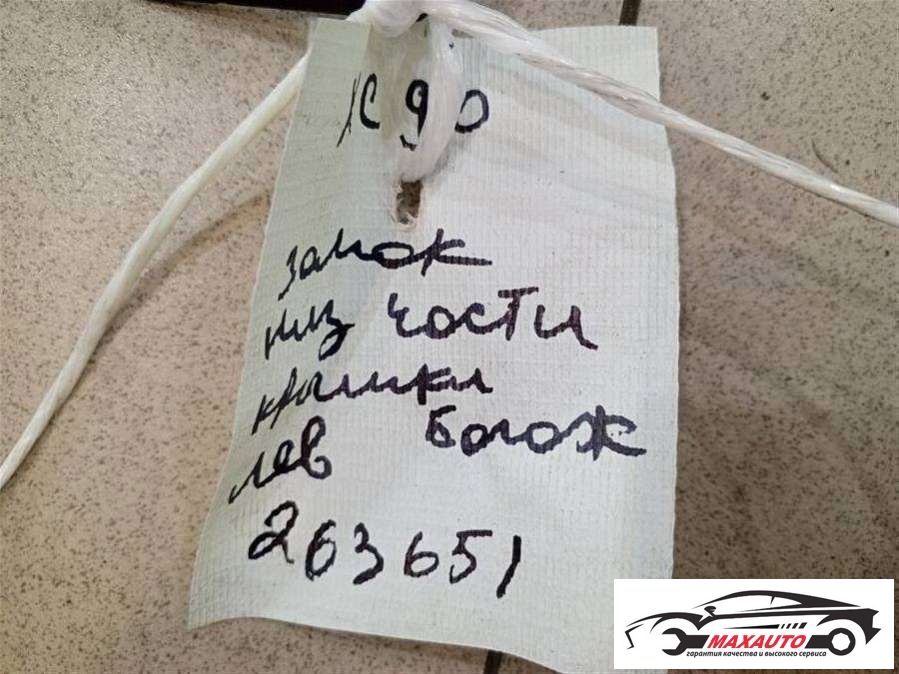 XC 90
замок
низ части
крышки
лев багаж
263651
MAXAUTO
гарантия качества и высокого сервиса